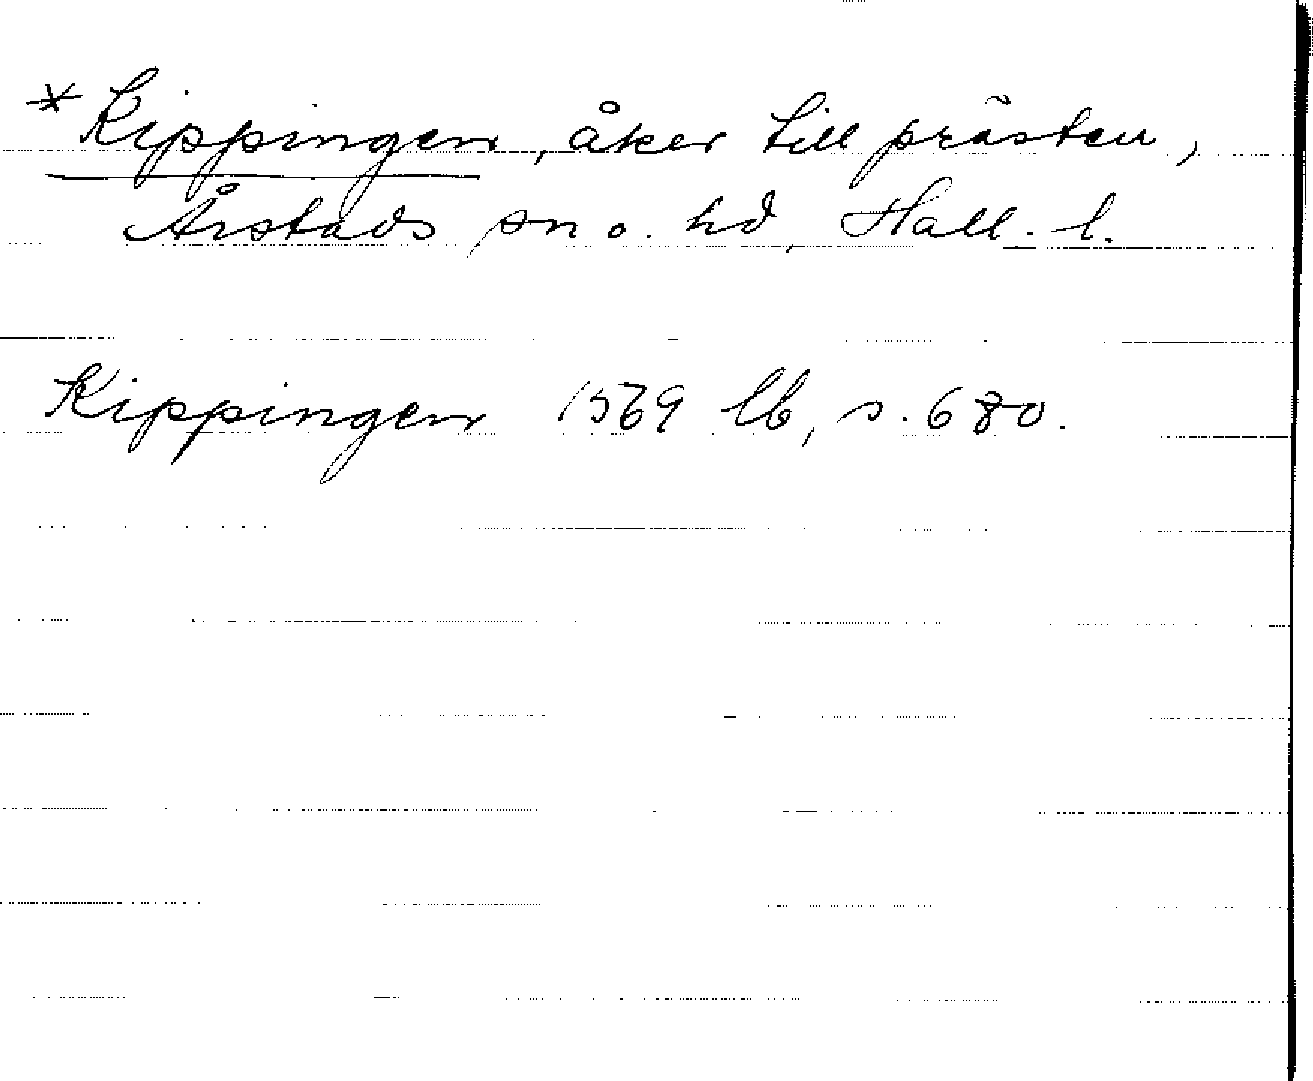 *Kippingen, åker till prästen,
Årstads sn o. hd, Hall. l.
Kippingen 1569 lb, s. 680.